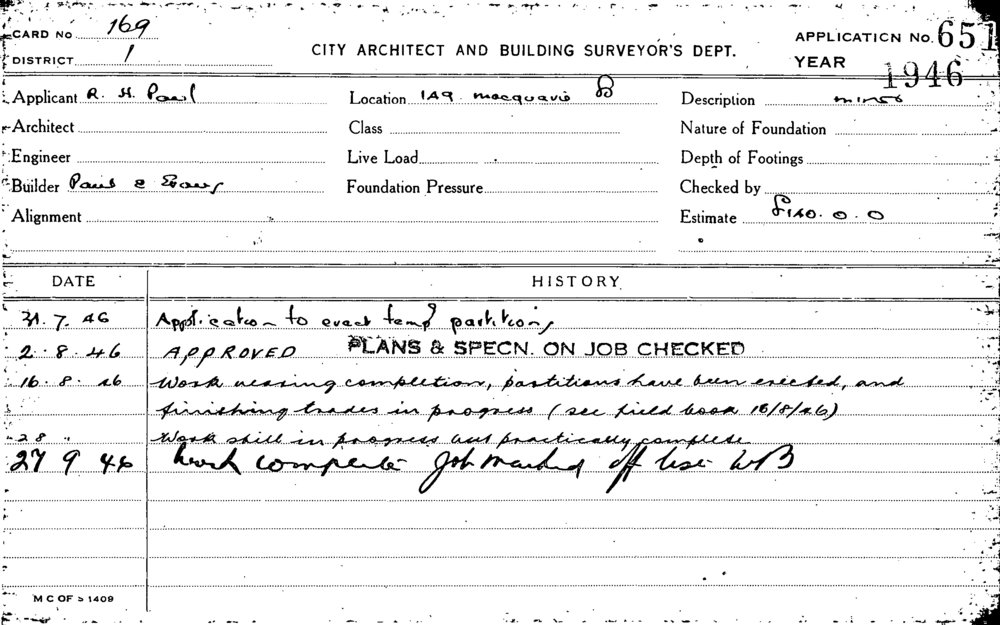 CARD No 169
DISTRICT 1
CITY ARCHITECT AND BUILDING SURVEYOR'S DEPT.
APPLICATION No. 651
YEAR 1946
Applicant R. H. Paul
Location 149. Macquarie
Description minor
Architect
Class
Nature of Foundation
Engineer
Live Load
Depth of Footings
Builder Paul &
Foundation Pressure
Checked by
Alignment
Estimate £140. 0. 0
DATE
HISTORY
31. 7. 46 Application to erect temp partitions
2. 8. 46 APPROVED PLANS & SPECN. ON JOB CHECKED
16. 8. 46 Work nearing completion, partitions have been erected, and
finishing trades in progress (see field book 16/8/46)
28 " Work still in progress but practically complete
27 9 46 Work complete Job marked off list WB
M C OF S 1409